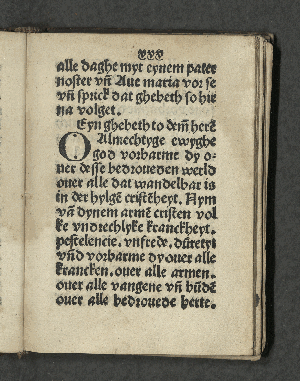 xxx
alle daghe myt eynem pater
noster vñ Aue maria vor se
vñ sprick dat ghebeth so hir
na volget.
Eyn ghebeth to dem̃ herẽ
O Almechtyge ewyghe
god vorbarme dy o-
uer desse bedroueden werld
ouer alle dat wandelbar is
in der hylgẽ cristẽheyt. Nym
vam̃ dynem armẽ cristen vol
ke vndrechlyke kranckheyt.
pestelencie. vnfrede. dùretyt
vñd vorbarme dy ouer alle
krancken. ouer alle armen.
ouer alle vangene vñ bũdẽ
ouer alle bedrouede herte.